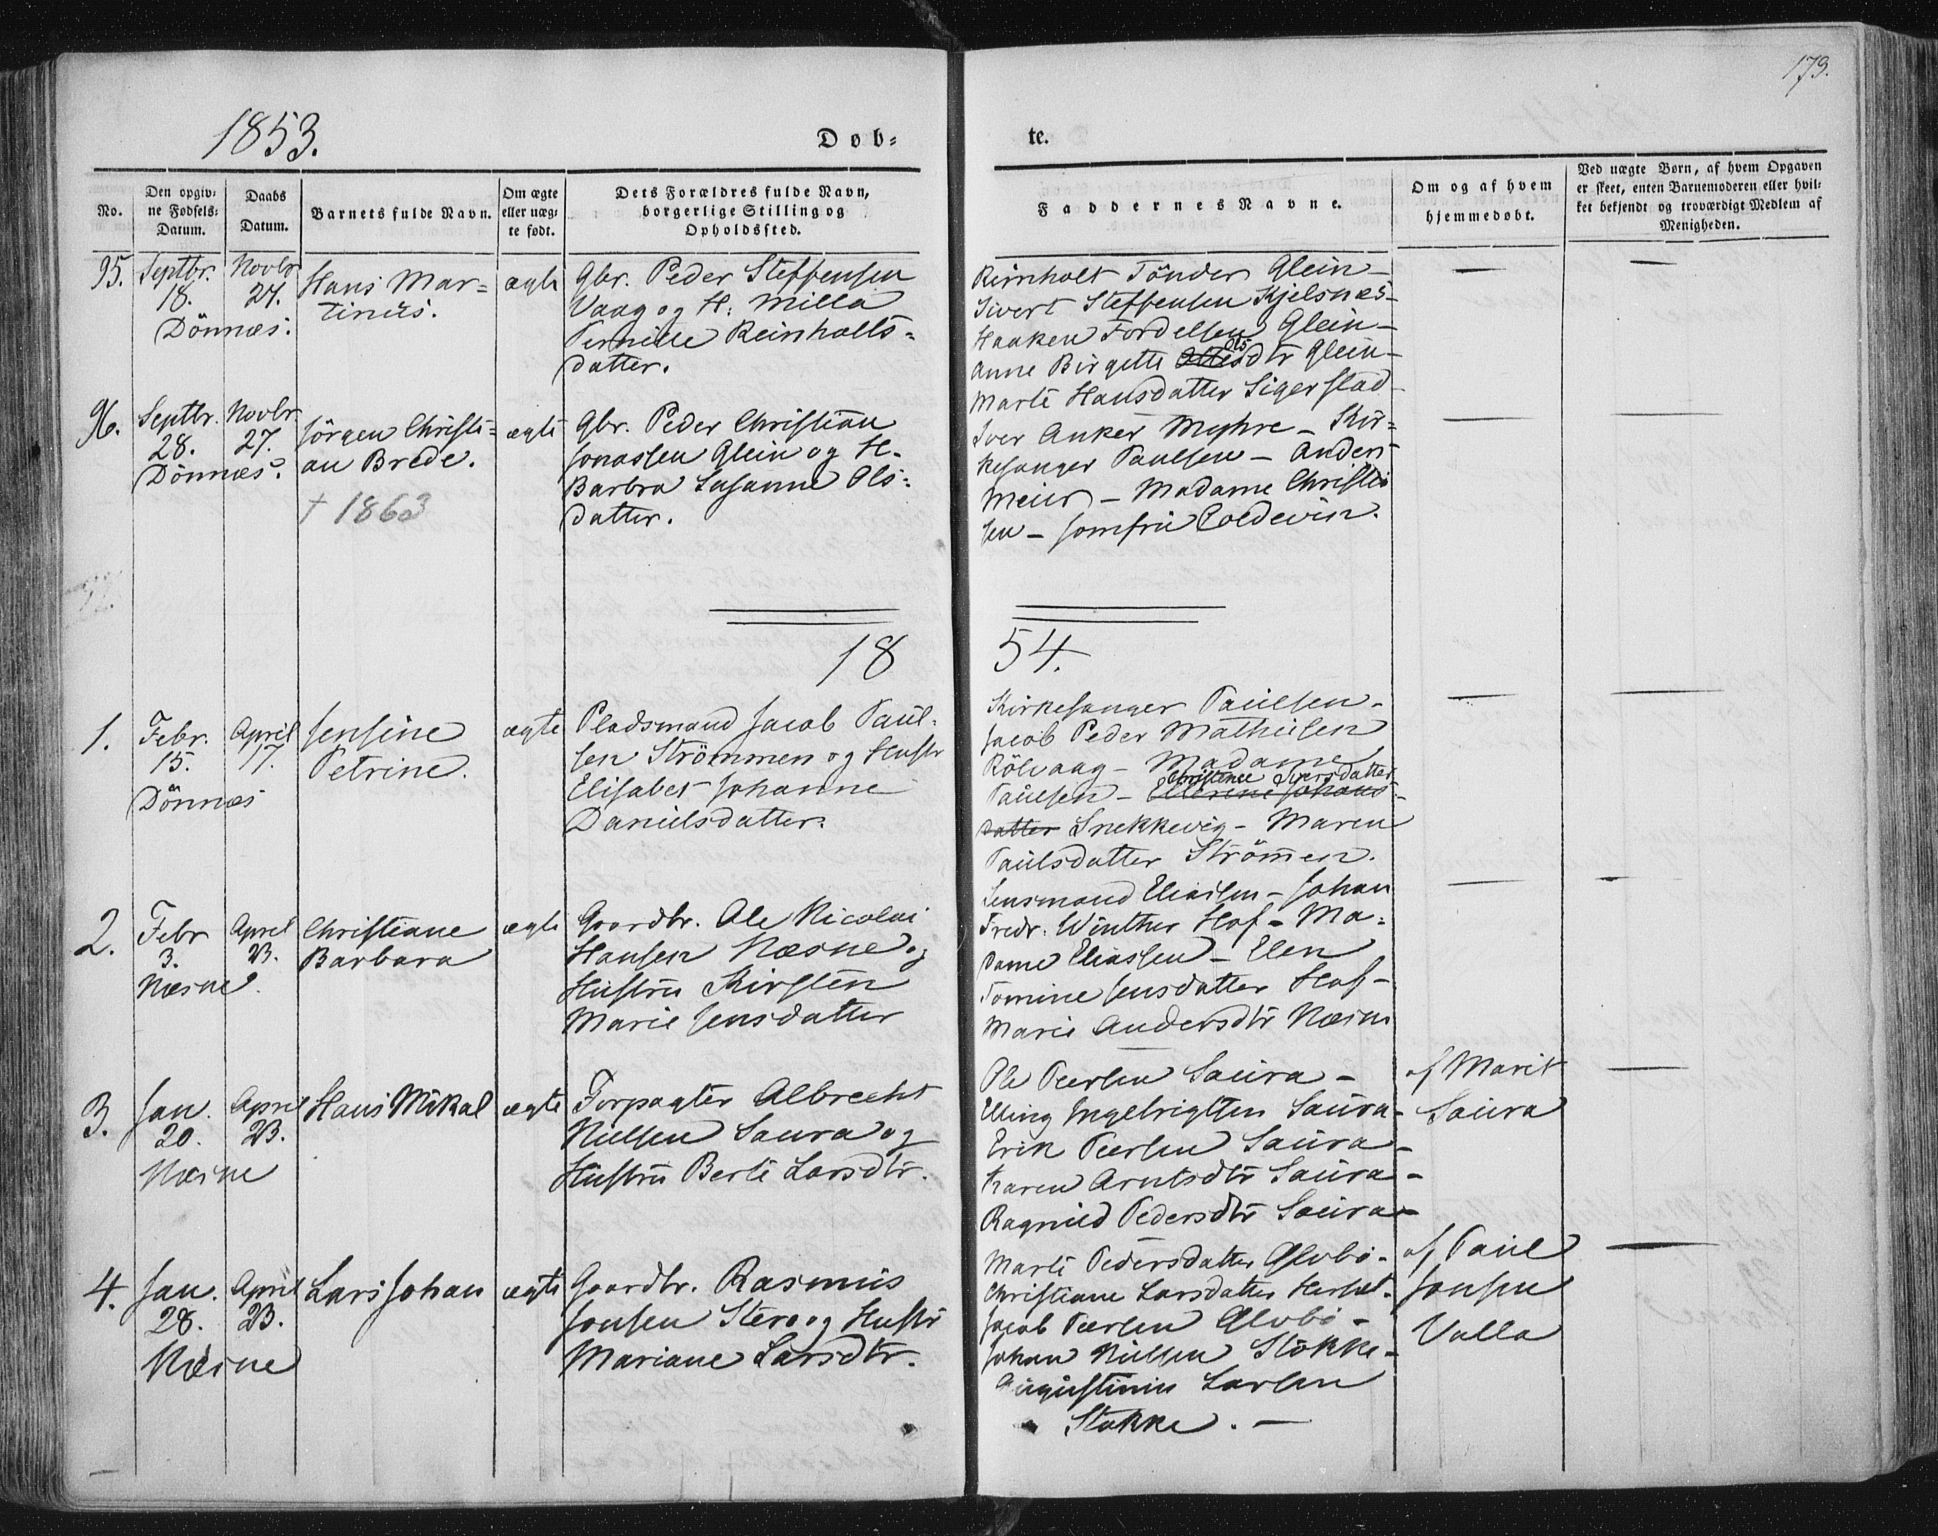 173.
1853.
Døb-
te.
No.
Den opgiv-
ne Fødsels-
Datum.
Daabs
Datum.
Barnets fulde Navn.
Om ægte
eller uæg-
te født.
Dets Forældres fulde Navn,
borgerlige Stilling og
Opholdssted.
Faddernes Navne.
Om og af hvem
hjemmedøbt.
Ved uægte Børn, af hvem Opgaven
er skeet, enten Barnemoderen eller hvil-
ket bekjendt og troværdigt Medlem af
Menigheden.
95.
Septbr.
18.
Dönnæs.
Novbr
27.
Hans Mar-
tinus.
ægte
Gbr. Peder Steffensen
Vaag og H: Milla
Pernille Reinholts-
datter.
Reinholt Tönder Glein -
Sivert Steffensen Kjelsnæs -
Haaken Tordelsen Glein -
Anne Birgette Olsdtr Glein -
Marte Hansdatter Sigerstad -
96.
Septbr.
28.
Dönnæs.
Novbr.
27.
Jörgen Christi-
an Brede.
† 1863
ægte
Gbr. Peder Christian
Jonassen Glein og H.
Barbra Susanne Ols-
datter.
Iver Anker Myhre - Kir-
kesanger Paulsen - Anders
Meier - Madame Christen
sen - Jomfru Coldevin.
18
54.
1.
Febr.
15.
Dönnæs
April
17.
Jensine
Petrine.
ægte
Pladsmand Jacob Paul-
sen Strömmen og Hustr
Elisabet Johanne
Danielsdatter.
Kirkesanger Paulsen -
Jacob Peder Mathisen
Rölvaag - Madame
Christence Iversdatter
Paulsen - Ellerine Johans-
datter Snekkevig - Maren
Paulsdatter Strömen.
2.
Febr
3.
Næsne.
April
23.
Christiane
Barbara
ægte
Gaardbr. Ole Nicolai
Hansen Næsne og
Hustru Kirsten
Marie Jensdatter
Lensmand Eliassen - Johan
Fredr. Winther Hof - Ma-
dame Eliassen - Elen
Tomine Jensdatter Hof -
Marie Andersdtr Næsne
3.
Jan.
20.
Næsne
April
23.
Hans Mikal
ægte
Forpagter Albrecht
Nielsen Saura og
Hustru Berte Larsdtr.
Ole Peersen Saura -
Elling Ingebrigtsen Saura -
Erik Peersen Saura -
Karen Arntsdtr Saura -
Ragnild Pedersdtr Saura -
af Marit
Saura
4.
Jan.
28.
Næsne
April
23.
Lars Johan
ægte
Gaardbr. Rasmus
Jonsen Stero og Hustr
Mariane Larsdtr.
Marte Pedersdatter Glvbö -
Christiane Larsdatter
Jacob Peersen Glvbö -
Johan Nielsen Stokke -
Augustinus Larsen
Stokke. -
af Paul
Jonsen
Valla